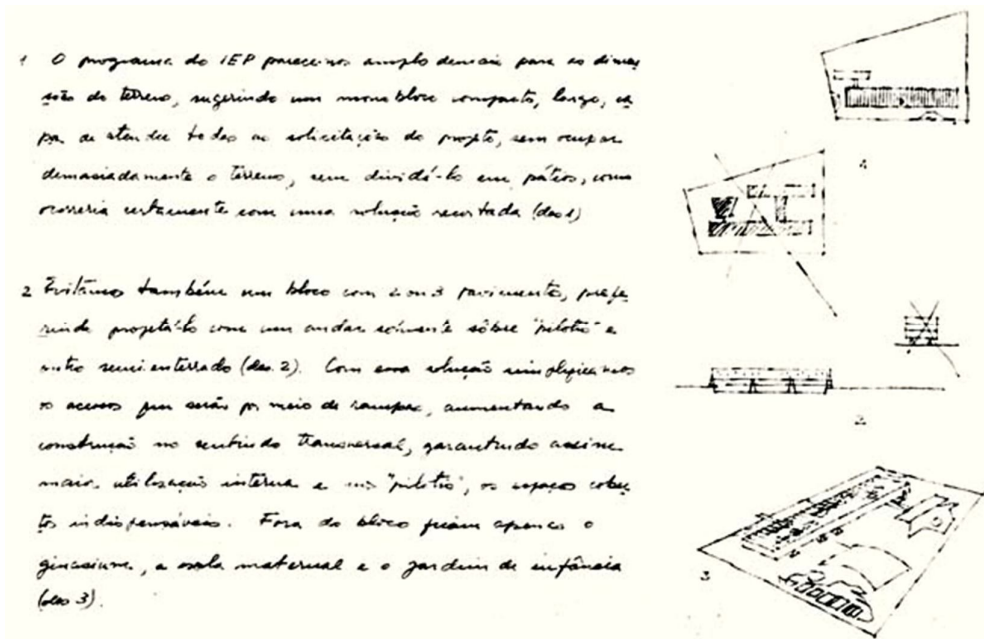 1 O programa do IEP pareceu-nos amplo demais para as dimen
sões do terreno, sugerindo um monobloco compacto, largo, ca
paz de atender todas as solicitações do projeto, sem ocupar
demasiadamente o terreno, sem dividí-lo em pátios, como
ocorreria certamente com uma solução recortada (des 1)
2 Evitamos também um bloco com 2 ou 3 pavimentos, prefe
rindo projetá-lo com um andar sòmente sôbre "pilotis" e
outro semi-enterrado (des. 2). Com essa solução simplificamos
os acessos que serão por meio de rampas, aumentando a
construção no sentido transversal, garantindo assim
maior utilização interna e nos "pilotis", os espaços cober
tos indispensáveis. Fora do bloco ficam apenas o
ginasium, a escola maternal e o jardim de infância
(des 3).
1
2
3